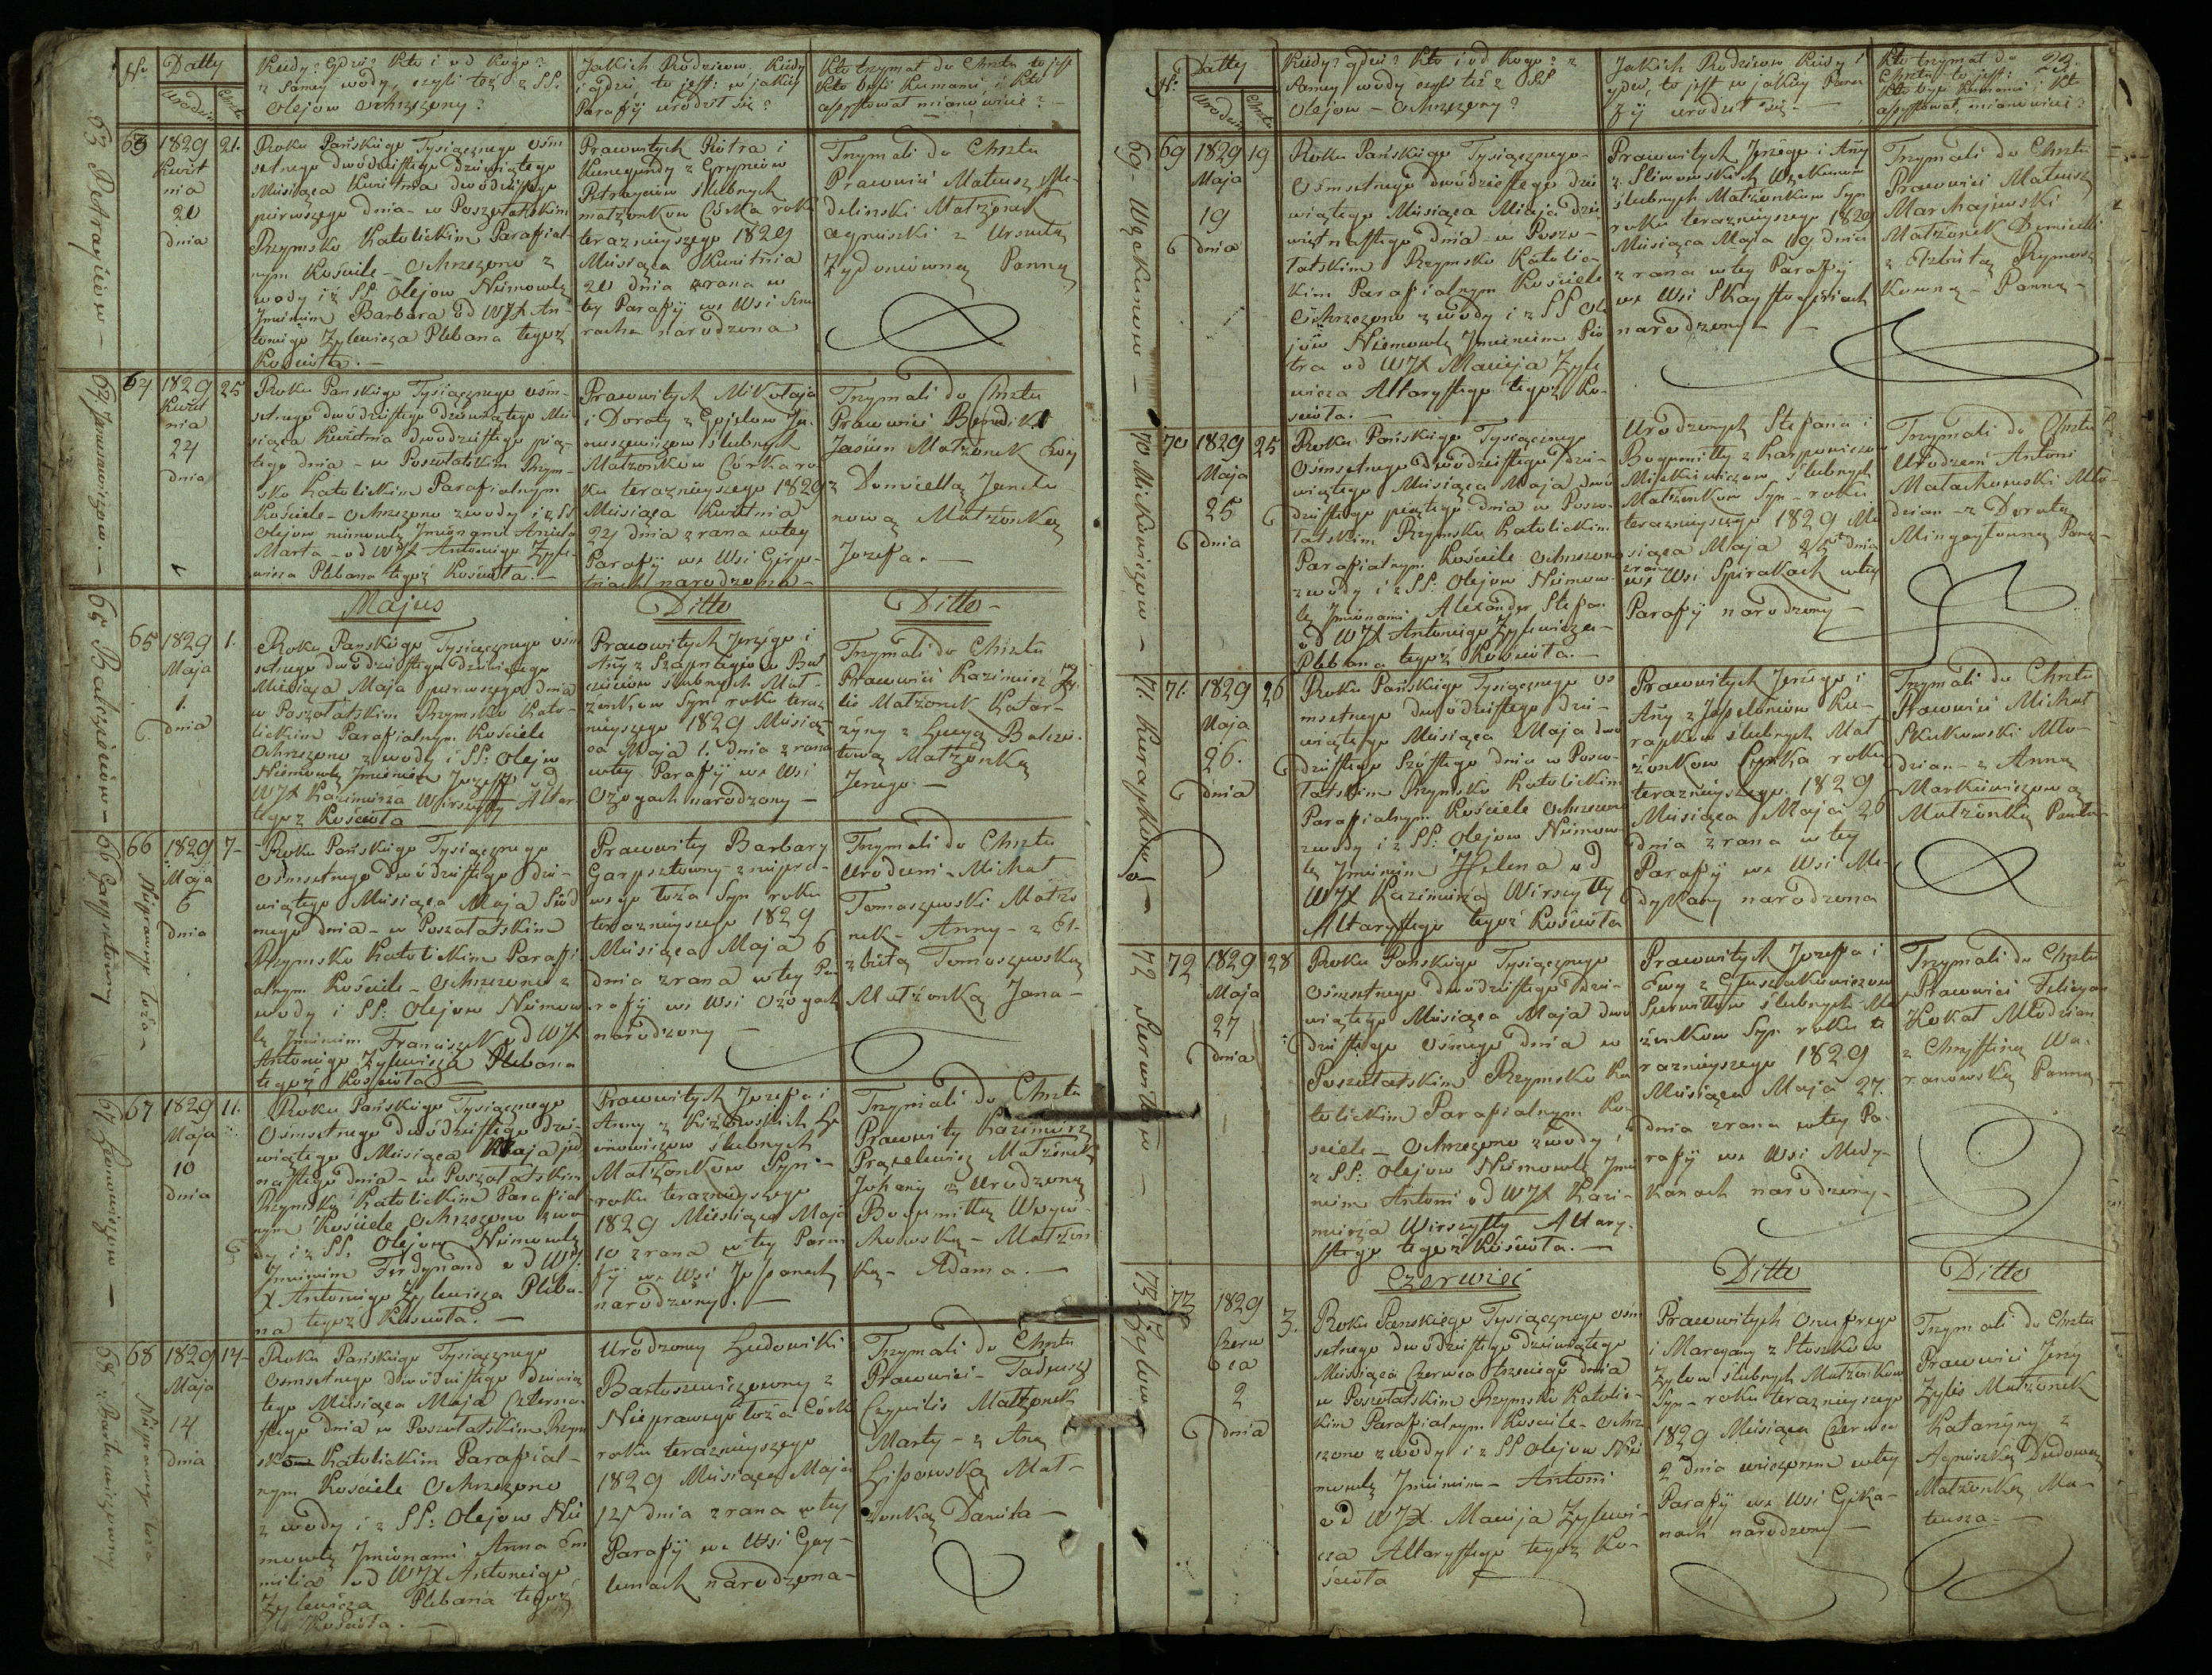 No
Datty
Urodzin
Chrztu
Kiedy? Gdzie? Kto i od Kogo?
z Samey wody, czyli też z SS.
Olejow Ochrzczony?
Jakich Rodzicow, Kiedy
i gdzie, to jest: w jakiey
Parafij urodził się?
Kto trzymał do Chrztu to jest
Kto byli Kumami, i Kto
assystował mianowicie?
63 Petraycisow
63
1829
Kwiet
nia
20
dnia
21.
Roku Pańskiego Tysiącznego ośm
setnego dwódziestego dziewiątego
Miesiąca Kwietnia dwódziestego
pierwszego dnia - w Poszołatskim
Rzymsko Katolickim Parafial-
nym Kościele - Ochrzczono z
wody i z SS. Olejow Niemowlę
Jmieniem Barbara od WJX An-
toniego Zylewicza Plebana tegoż
Kościoła. -
Prawowitych Piotra i
Kunegundy z
ślubnych
małżonkow Córka roku
teraznieyszego 1829
Miesiąca Kwietnia
20 dnia zrana w
tey Parafij we Wsi
narodzona
Trzymali do Chrztu
Prawowici Mateusz
Małżonek
Agnieszki z Urszulą
Panną
64 Januszewiczow. -
64
1829
Kwiet
nia
24
dnia
25
Roku Pańskiego Tysiącznego ośm-
setnego dwódziestego dziewiątego Mie-
siąca Kwietnia dwódziestego pią-
tego dnia - w Poszołatskim Rzym-
sko Katolickim Parafialnym
Kościele - Ochrzczono z wody i z SS
Olejow niemowlę Jmionami Aniela
Marta - od WJX Antoniego Zyle-
wicza Plebana tegoż Kościoła. -
Prawowitych Mikołaja
i Doroty z Ja-
nuszewiczow ślubnych
Małżonkow Córka ro-
ku teraznieyszego 1829
Miesiąca Kwietnia
24 dnia zrana w tey
Parafij we Wsi
narodzona -
Trzymali do Chrztu
Prawowici Benedikt
Małżonek Ewy
z Domicellą
Małżonką
Jozefa. -
Majus
Ditto
Ditto -
65
65
1829
Maja
1.
dnia
1.
Roku Pańskiego Tysiącznego ośm
setnego dwódziestego dziewiątego
Miesiąca Maja pierwszego dnia
w Poszołatskim Rzymsko Kato-
lickim Parafialnym Kościele
Ochrzczono z wody i SS: Olejow
Niemowlę Jmieniem Jozeff od
WJX Kazimierza Wirszyłły Altar.
tegoż Kościoła
Prawowitych Jerzego i
Anny z
ślubnych Mał-
żonkow Syn roku teraz
nieyszego 1829 Miesią-
ca Maja 1. dnia zrana
w tey Parafij we Wsi
Ożogach narodzony -
Trzymali do Chrztu
Prawowici Kazimierz Zy-
lis Małżonek Katar-
zyny z Łucyą
Małżonką
Jerzego -
66 Garpsztowny Nieprawego łoża -
66
1829
Maja
6
dnia
7-
Roku Pańskiego Tysiącznego
Ośmsetnego Dwódziestego dzie-
wiątego Miesiąca Maja Siód-
mego dnia - w Poszołatskim
Rzymsko Katolickim Parafi
alnym Kościele - Ochrzczono z
wody i SS: Olejow Niemow-
lę Jmieniem Franciszek od WJX
Antoniego Zylewicza Plebana
tegoż Kościoła -
Prawowitey Barbary
Garpsztowny z niepra-
wego łoża Syn roku
teraznieyszego 1829
Miesiąca Maja 6
dnia zrana w tey Pa-
rafij we Wsi Ożogach
narodzony -
Trzymali do Chrztu
Urodzeni - Michał
Tomaszewski Małżo
nek - Anny - z El-
zbietą Tomaszewską
Małżonką Jana -
67 Leonowiczow -
67
1829
Maja
10
dnia
11.
Roku Pańskiego Tysiącznego
Ośmsetnego dwódziestego dzie-
wiątego Miesiąca Maja jede-
nastego dnia - w Poszołatskim
Rzymsko Katolickim Parafial-
nym Kościele Ochrzczono z wo-
dy i z SS. Olejow Niemowlę
Jmieniem Ferdynand od WJ.
X Antoniego Zylewicza Pleba-
na tegoż Kościoła. -
Prawowitych Jozefa i
Anny z Le-
onowiczow ślubnych
Małżonkow Syn -
roku teraznieyszego
1829 Miesiąca Maja
10 zrana w tey Para-
fij we Wsi
narodzony. -
Trzymali do Chrztu
Prawowity Kazimierz
Małżonek
Johany z Urodzoną
Bogumiłłą
Małżon-
ką - Adama. -
68 Bartoszewiczowny Nieprawego łoża
68
1829
Maja
14
dnia
14-
Roku Pańskiego Tysiącznego
Osmsetnego dwódziestego dziewią
tego Miesiąca Maja Czterna-
stego dnia w Poszołatskim Rzym
sko Katolickim Parafial-
nym Kościele Ochrzczono
z wody i z SS: Olejow Nie
mowlę Jmionami Anna Em
milia od WJX Antoniego
Zylewicza Plebana tegoż
Kościoła. -
Urodzoney Ludowiki
Bartoszewiczowny z
Nieprawego łoża Córka
roku teraznieyszego
1829 Miesiąca Maja
dnia zrana w tey
Parafij we Wsi Gay-
lunach narodzona -
Trzymali do Chrztu
Prawowici - Tadeusz
Małżonek
Marty - z Anną
Lipowską Mał-
żonką Daniła -
No
Datty
Urodzin
Chrztu
Kiedy? gdzie? Kto i od Kogo? z
Samey wody czyli też z SS
Olejow - Ochrzczony?
Jakich Rodzicow Kiedy i
gdzie, to jest w jakiey Para
fij urodził się. -
Kto trzymał do
Chrztu to jest:
Kto byli Kumami i Kto
assystował, mianowicie?
29.
69
69
1829
Maja
19
dnia
19
Roku Pańskiego Tysiącznego -
Ośmsetnego dwódziestego dzie
wiątego Miesiąca Maja dzie
więtnastego dnia - w Poszo-
łatskim Rzymsko Katolic-
kim Parafialnym Kościele
Ochrzczono z wody i z SS Ole
jow Niemowlę Jmieniem Pio
tra od WJX Macieja Zyle
wicza Altarystego tegoż Ko-
ścioła. -
Prawowitych Jerzego i Anny
z
ślubnych Małżonkow Syn
roku teraznieyszego 1829
Miesiąca Maja 19 dnia
zrana w tey Parafij
we Wsi
narodzony -
Trzymali do Chrztu
Prawowici Mateusz
Marchajewski
Małżonek Domicelli
z Elzbietą
Panną -
70 Mickiewiczow -
70
1829
Maja
25
dnia
25
Roku Pańskiego Tysiącznego
Ośmsetnego Dwódziestego dzie-
wiątego Miesiąca Maja dwó
dziestego piątego dnia w Poszo-
łatskim Rzymsko Katolickim
Parafialnym Kościele Ochrzczono
z wody i z SS: Olejow Niemow-
lę Jmionami Alexander Stefan
od WJX Antoniego Zylewicza -
Plebana tegoż Kościoła. -
Urodzonych Stefana i
Bogumiłły z Karpowiczow
Mickiewiczow Ślubnych
Małżonkow Syn - roku
teraznieyszego 1829 Mie
siąca Maja 25 dnia
zrana
we Wsi Spirakach w tey
Parafij narodzony -
Trzymali do Chrztu
Urodzeni Antoni
Małachowski Mło-
dzian - z Dorotą
Mingaylowną Pan-
71. Kurapkow
71.
1829
Maja
26.
dnia
26
Roku Pańskiego Tysiącznego Oś
msetnego dwódziestego dzie-
wiątego Miesiąca Maja dwó
dziestego Szóstego dnia w Poszo-
łatskim Rzymsko Katolickim
Parafialnym Kościele Ochrzczono
z wody i z SS: Olejow Niemow
lę Jmieniem Helena od
WJX Kazimierza Wirszyłły
Altarystego tegoż Kościoła
Prawowitych Jerzego i
Anny z Ku-
rapkow ślubnych Mał
żonkow Córka roku
teraznieyszego. 1829
Miesiąca Maja 26
dnia zrana w tey
Parafij we Wsi Me-
dykany narodzona
Trzymali do Chrztu
Prawowici Michał
Skukowski Mło-
dzian - z Anną
Markiewiczową
Małżonką
72
72
1829
Maja
27
dnia
28
Roku Pańskiego Tysiącznego
Ośmsetnego dwódziestego dzie-
wiątego Miesiąca Maja dwó
dziestego Osmego dnia w
Poszołatskim Rzymsko Ka
tolickim Parafialnym Ko-
ściele - Ochrzczono z wody i
z SS: Olejow Niemowlę Jmie
niem Antoni od WJX Kazi-
mierza Wirszyłły Altary-
stego tegoż Kościoła. -
Prawowitych Jozefa i
Ewy z
ślubnych Mał
żonkow Syn roku te
raznieyszego 1829
Miesiąca Maja 27.
dnia zrana w tey Pa-
rafij we Wsi Medy-
kanach narodzony -
Trzymali do Chrztu
Prawowici Felicyan
Młodzian
z Chrystiną Wa-
ranowską Panną
Czerwiec
Ditto
Ditto
73 Zylow
73
1829
Czerw
ca
2
dnia
3.
Roku Pańskiego Tysiącznego ośm
setnego dwódziestego dziewiątego
Miesiąca Czerwca trzeciego dnia
w Poszołatskim Rzymsko Katolic-
kim Parafialnym Kościele - Ochrz
czono z wody i z SS Olejow Nie
mowlę Jmieniem - Antoni
od WJX. Macieja Zylewi-
cza Altarystego tegoż Ko-
ścioła
Prawowitych Onufrego
i Maryany z
Zylow ślubnych Małżonkow
Syn - roku teraznieyszego
1829 Miesiąca Czerwca
2 dnia wieczorem w tey
Parafij we Wsi Gika-
nach narodzony -
Trzymali do Chrztu
Prawowici Jerzy
Zylis Małżonek
Katarzyny z
Agnieszką Dudową
Małżonką Ma-
teusza -